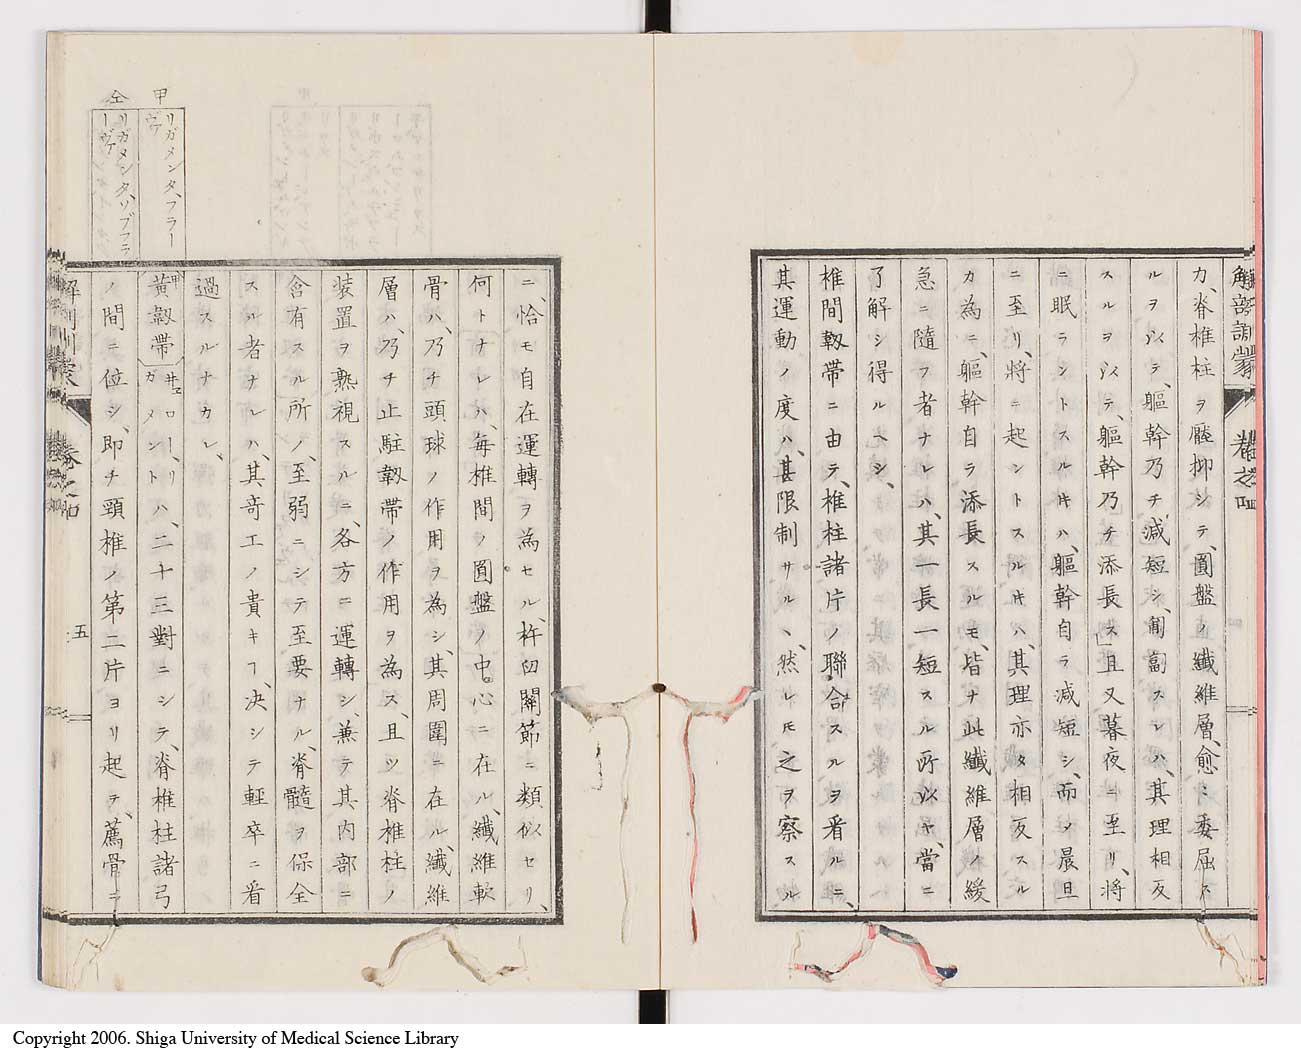 解剖訓蒙 卷之四
カ、脊椎柱ヲ壓抑シテ、圓盤ノ纎維層、愈ミ委屈ス
ルヲ以テ、軀幹乃チ減短シ、匍匐スレハ、其理相反
スルヲ以テ、軀幹乃チ添長ス、且又暮夜ニ至リ、將
ニ眠ラントスルキハ、軀幹自ラ減短シ、而シテ晨旦
ニ至リ、將ニ起ントスルキハ、其理亦タ相反スル
カ為ニ、軀幹自ラ添長スルモ、皆ナ此纎維層ノ緩
急ニ隨フ者ナレハ、其一長一短スル所以ヤ、當ニ
了解シ得ルヘシ、
椎間韌帶ニ由テ、椎柱諸片ノ聯合スルヲ看ルニ、
其運動ノ度ハ、甚限制サル、然レ𪜈之ヲ察スル
ニ、恰モ自在運轉ヲ為セル、杵臼關節ニ類似セリ、
何トナレハ、毎椎間ノ圓盤ノ中心ニ在ル、纎維軟
骨ハ、乃チ頭球ノ作用ヲ為シ、其周圍ニ在ル、纎維
層ハ、乃チ止駐韌帶ノ作用ヲ為ス、且ツ脊椎柱ノ
裝置ヲ熟視スルニ、各方ニ運轉シ、兼テ其内部ニ
含有スル所ノ、至弱ニシテ至要ナル、脊髓ヲ保全
スル者ナレハ、其奇工ノ貴キヿ、决シテ輕卒ニ看
過スルナカレ、
甲
リガメンタ、フラーヴァ
仝
リガメンタ、ソブフラーヴァ
甲黄韌帶 ローリガメント ハ、二十三對ニシテ、脊椎柱諸弓
ノ間ニ位シ、即チ頸椎ノ第二片ヨリ起テ、薦骨ニ
五